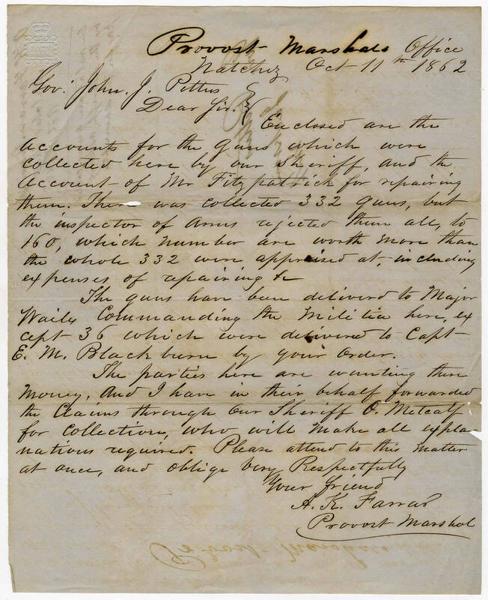 Provost Marshals Office
Natchez Oct 11th 1862
Gov. John. J. Pettus
Dear Sir.
Enclosed are the
accounts for the guns which were
collected here by our Sheriff, and the
account of Mr Fitzpatrick for repairing
them. There was collected 332 guns, but
the inspector of Arms rejected them all, to
160, which number are worth more than
the whole 332 were appraised at, including
expenses of repairing &c
The guns have been delivered to Major
Wailes Commanding the Militia here, ex
cept 36 which were delivered to Capt
E. M. Blackburn by your order.
The parties here are wanting there
money, and I have in their behalf forwarded
the claims through our Sheriff O. Metcalf
for collection, who will make all expla
nations required. Please attend to this matter
at once, and oblige Very Respectfully
Your friend
A. K. Farrar
Provost Marshal